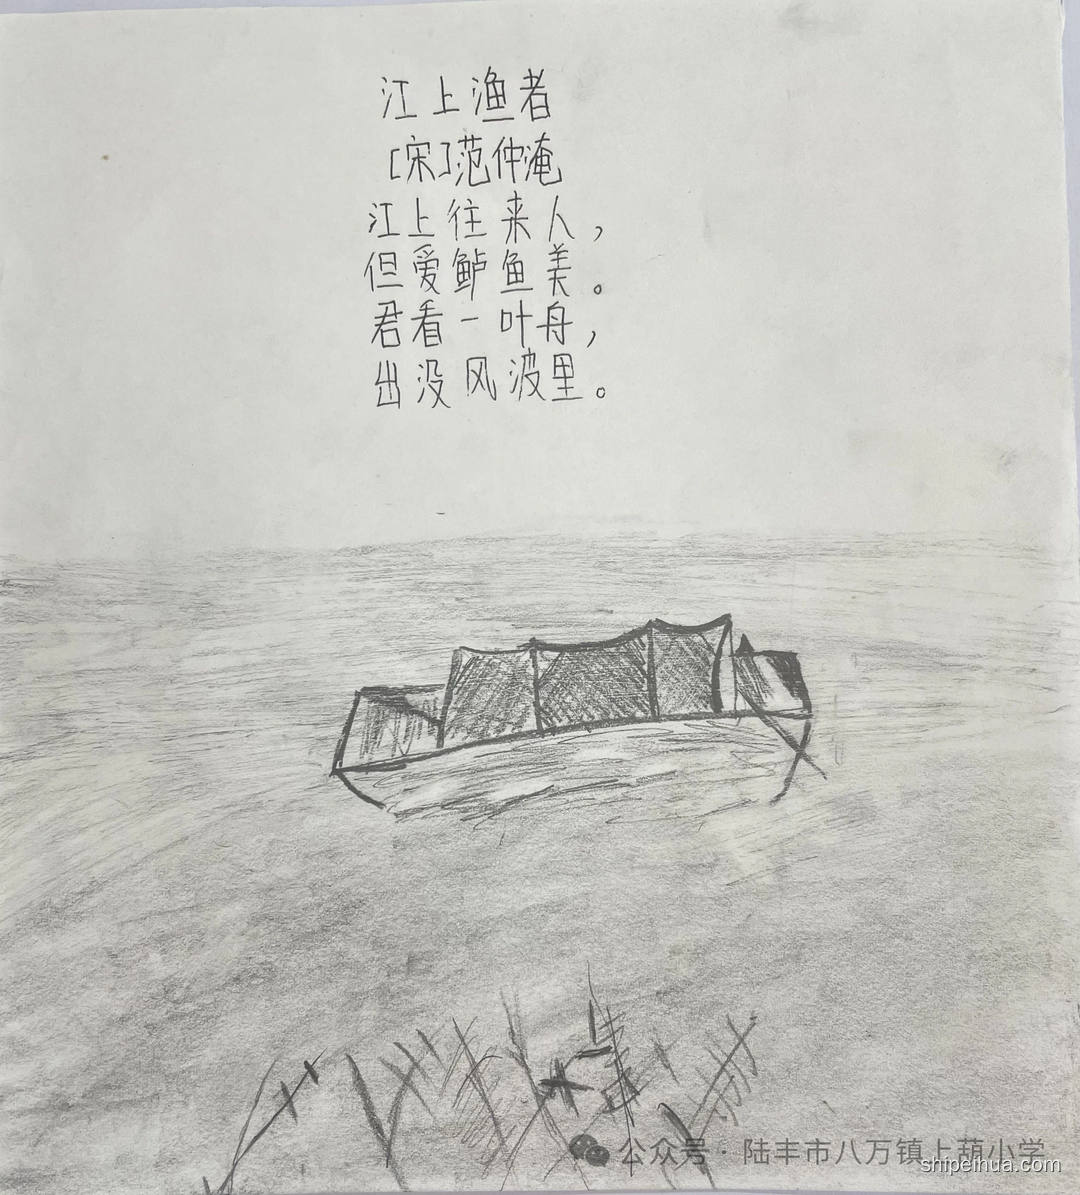 江上渔者
[宋]范仲淹
江上往来人，
但爱鲈鱼美。
君看一叶舟，
出没风波里。
公众号·陆丰市八万镇上葫小学
shipeihua.com